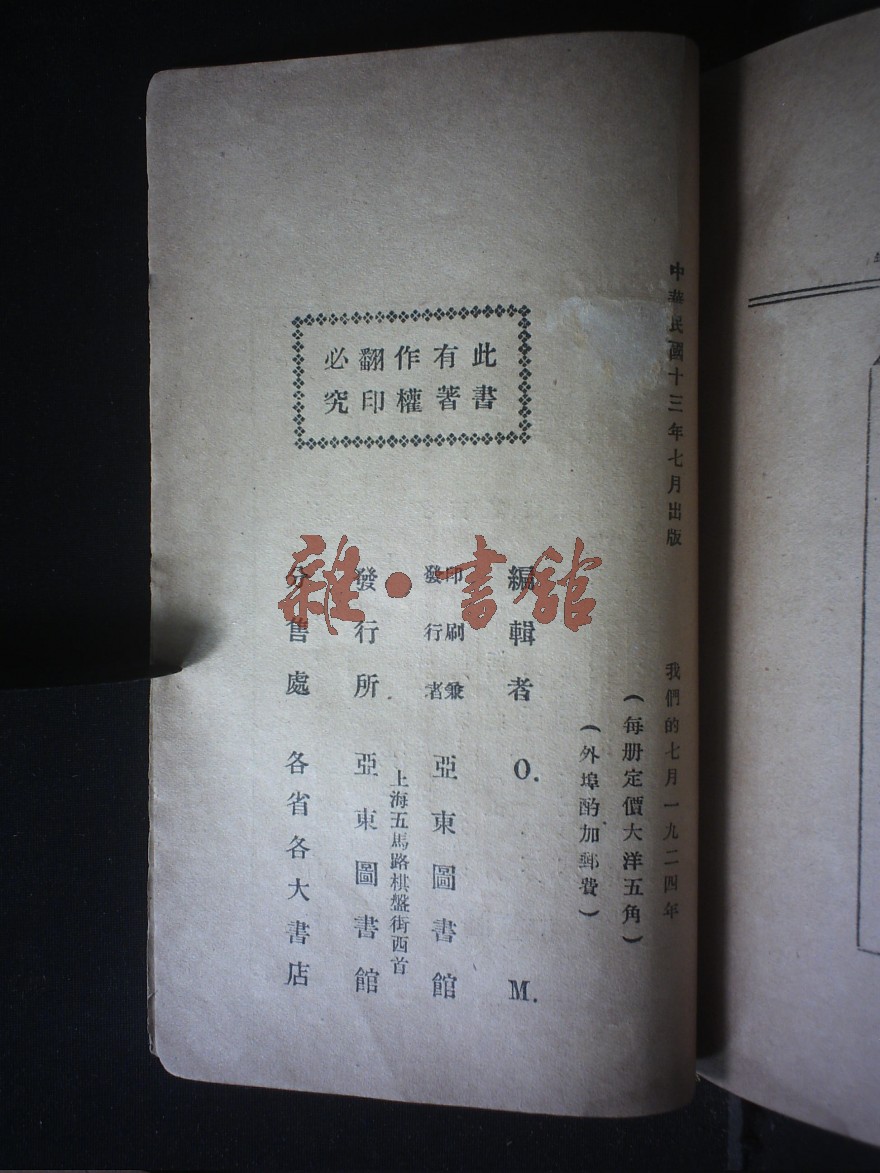 中華民國十三年七月出版
我們的七月一九二四年
(每册定價大洋五角)
(外埠酌加郵費)
此書有著作權翻印必究
編輯者 O. M.
印刷兼發行者 亞東圖書館
上海五馬路棋盤街西首
發行所 亞東圖書館
分售處 各省各大書店
雜·書館